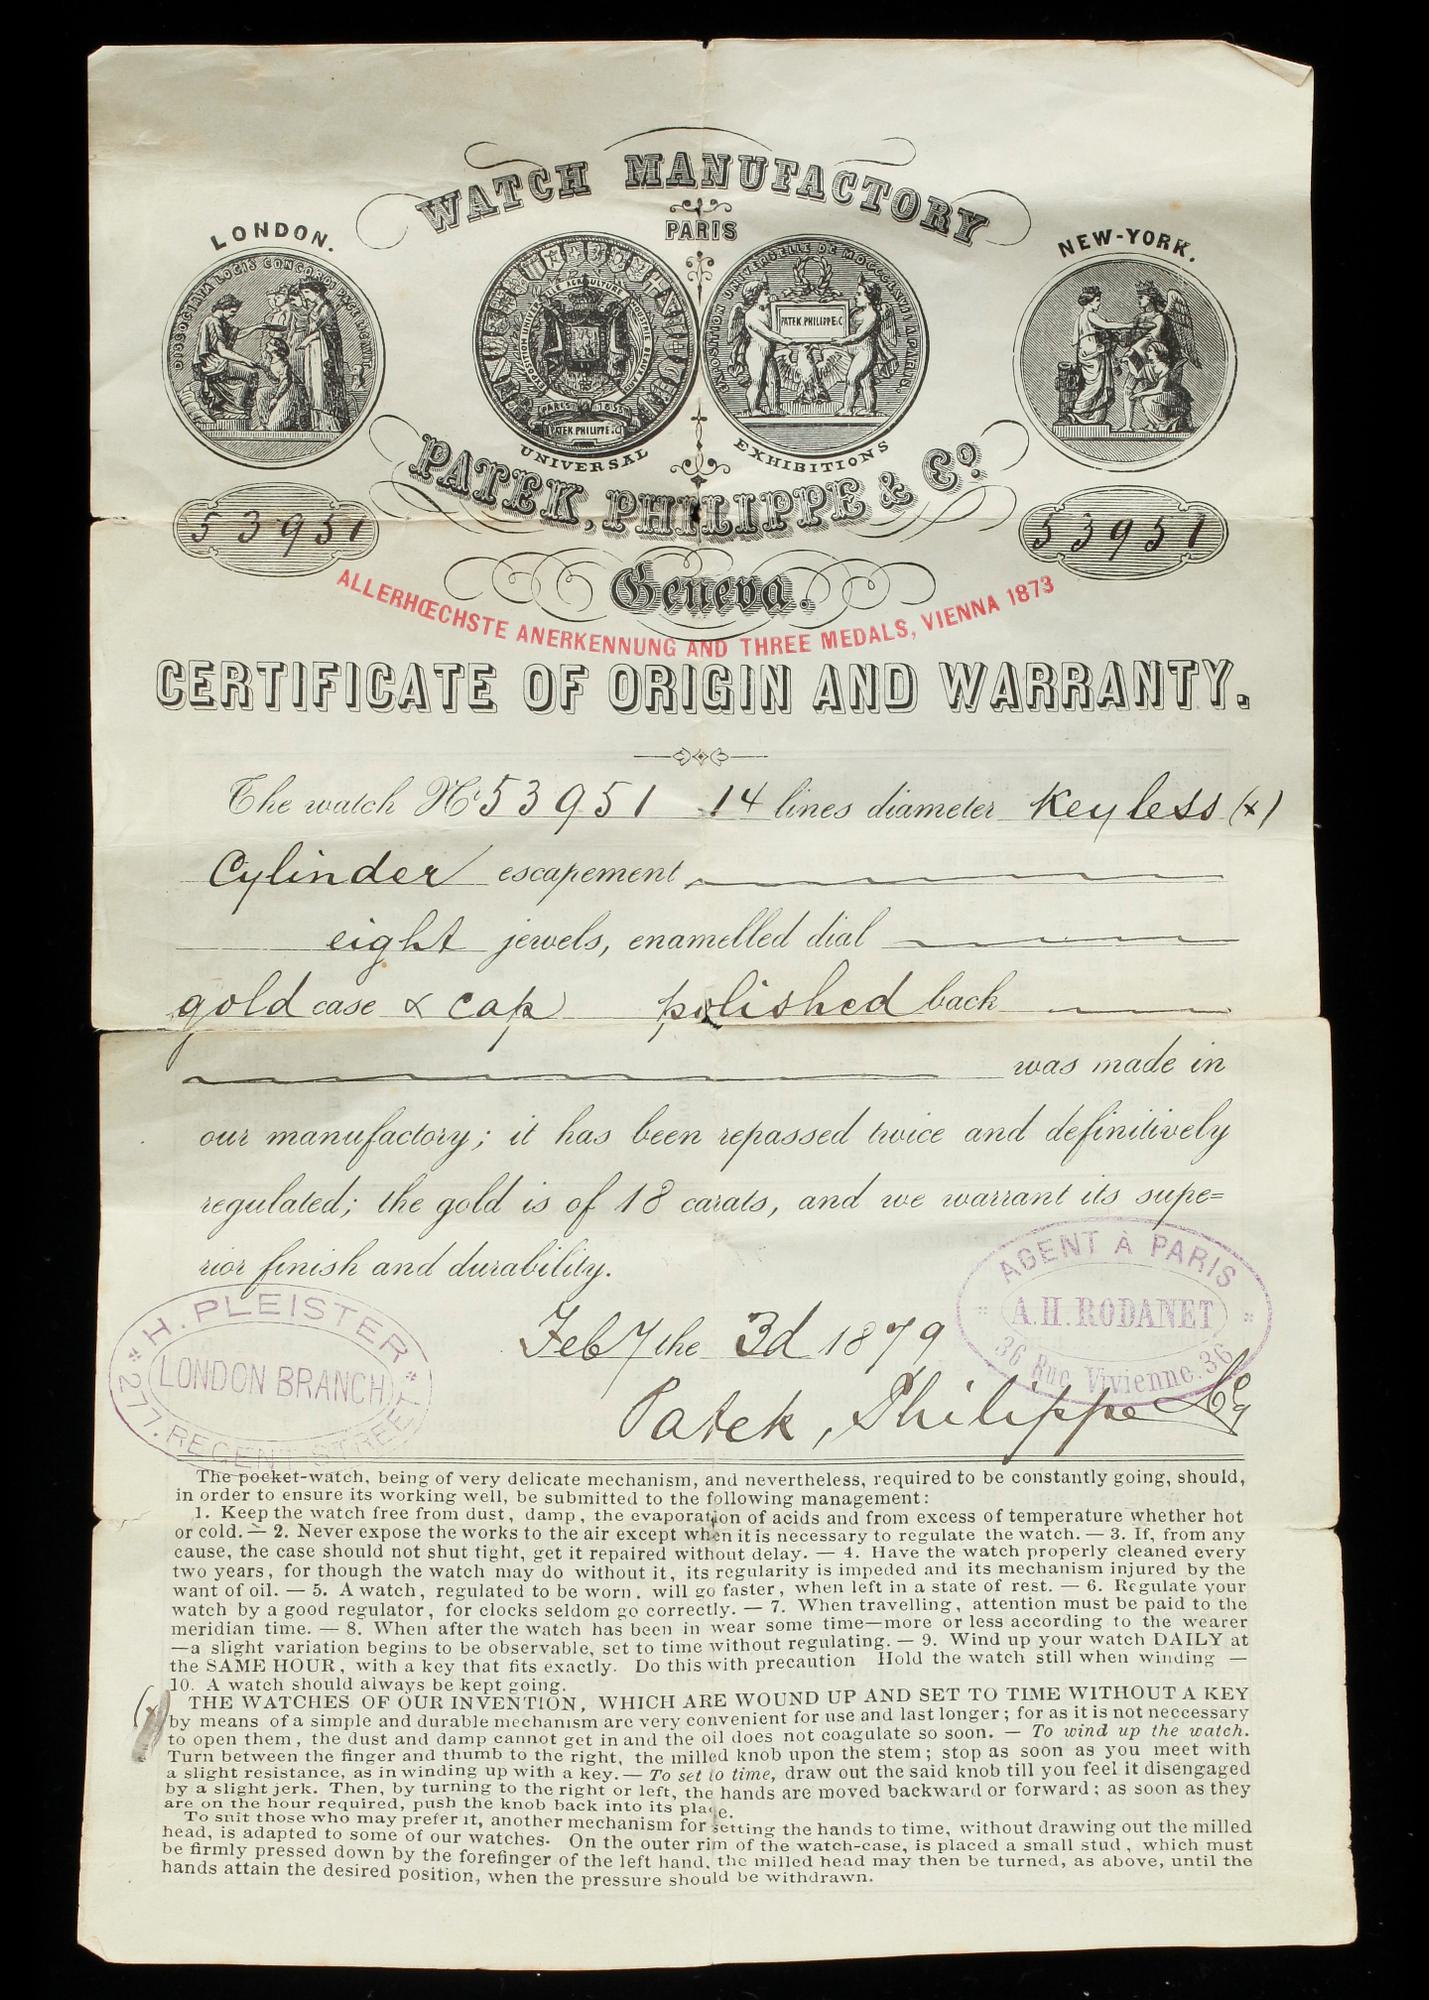 WATCH MANUFACTORY
PARIS
LONDON.
NEW-YORK.
PARIS 1855
PATEK PHILIPPE &C
EXPOSITION UNIVERSELLE DE MDCCCLXVII A PARIS
PATEK PHILIPPE &C
UNIVERSAL EXHIBITIONS
PATEK, PHILIPPE & Cº
53951
53951
Geneva.
ALLERHŒCHSTE ANERKENNUNG AND THREE MEDALS, VIENNA 1873
CERTIFICATE OF ORIGIN AND WARRANTY.
The watch Nº 53951 14 lines diameter Keyless (x)
Cylinder escapement
eight jewels, enamelled dial
gold case & cap polished back
was made in
our manufactory; it has been repassed twice and definitively
regulated; the gold is of 18 carats, and we warrant its supe=
rior finish and durability.
AGENT A PARIS
A.H. RODANET
36 Rue Vivienne. 36
H. PLEISTER
LONDON BRANCH
277. REGENT STREET
Feby the 3d 1879
Patek, Philippe & Co
The pocket-watch, being of very delicate mechanism, and nevertheless, required to be constantly going, should,
in order to ensure its working well, be submitted to the following management:
1. Keep the watch free from dust, damp, the evaporation of acids and from excess of temperature whether hot
or cold. — 2. Never expose the works to the air except when it is necessary to regulate the watch. — 3. If, from any
cause, the case should not shut tight, get it repaired without delay. — 4. Have the watch properly cleaned every
two years, for though the watch may do without it, its regularity is impeded and its mechanism injured by the
want of oil. — 5. A watch, regulated to be worn, will go faster, when left in a state of rest. — 6. Regulate your
watch by a good regulator, for clocks seldom go correctly. — 7. When travelling, attention must be paid to the
meridian time. — 8. When after the watch has been in wear some time—more or less according to the wearer
—a slight variation begins to be observable, set to time without regulating. — 9. Wind up your watch DAILY at
the SAME HOUR, with a key that fits exactly. Do this with precaution Hold the watch still when winding —
10. A watch should always be kept going.
(x) THE WATCHES OF OUR INVENTION, WHICH ARE WOUND UP AND SET TO TIME WITHOUT A KEY
by means of a simple and durable mechanism are very convenient for use and last longer; for as it is not neccessary
to open them, the dust and damp cannot get in and the oil does not coagulate so soon. — To wind up the watch.
Turn between the finger and thumb to the right, the milled knob upon the stem; stop as soon as you meet with
a slight resistance, as in winding up with a key. — To set to time, draw out the said knob till you feel it disengaged
by a slight jerk. Then, by turning to the right or left, the hands are moved backward or forward; as soon as they
are on the hour required, push the knob back into its place.
To suit those who may prefer it, another mechanism for setting the hands to time, without drawing out the milled
head, is adapted to some of our watches. On the outer rim of the watch-case, is placed a small stud, which must
be firmly pressed down by the forefinger of the left hand, the milled head may then be turned, as above, until the
hands attain the desired position, when the pressure should be withdrawn.